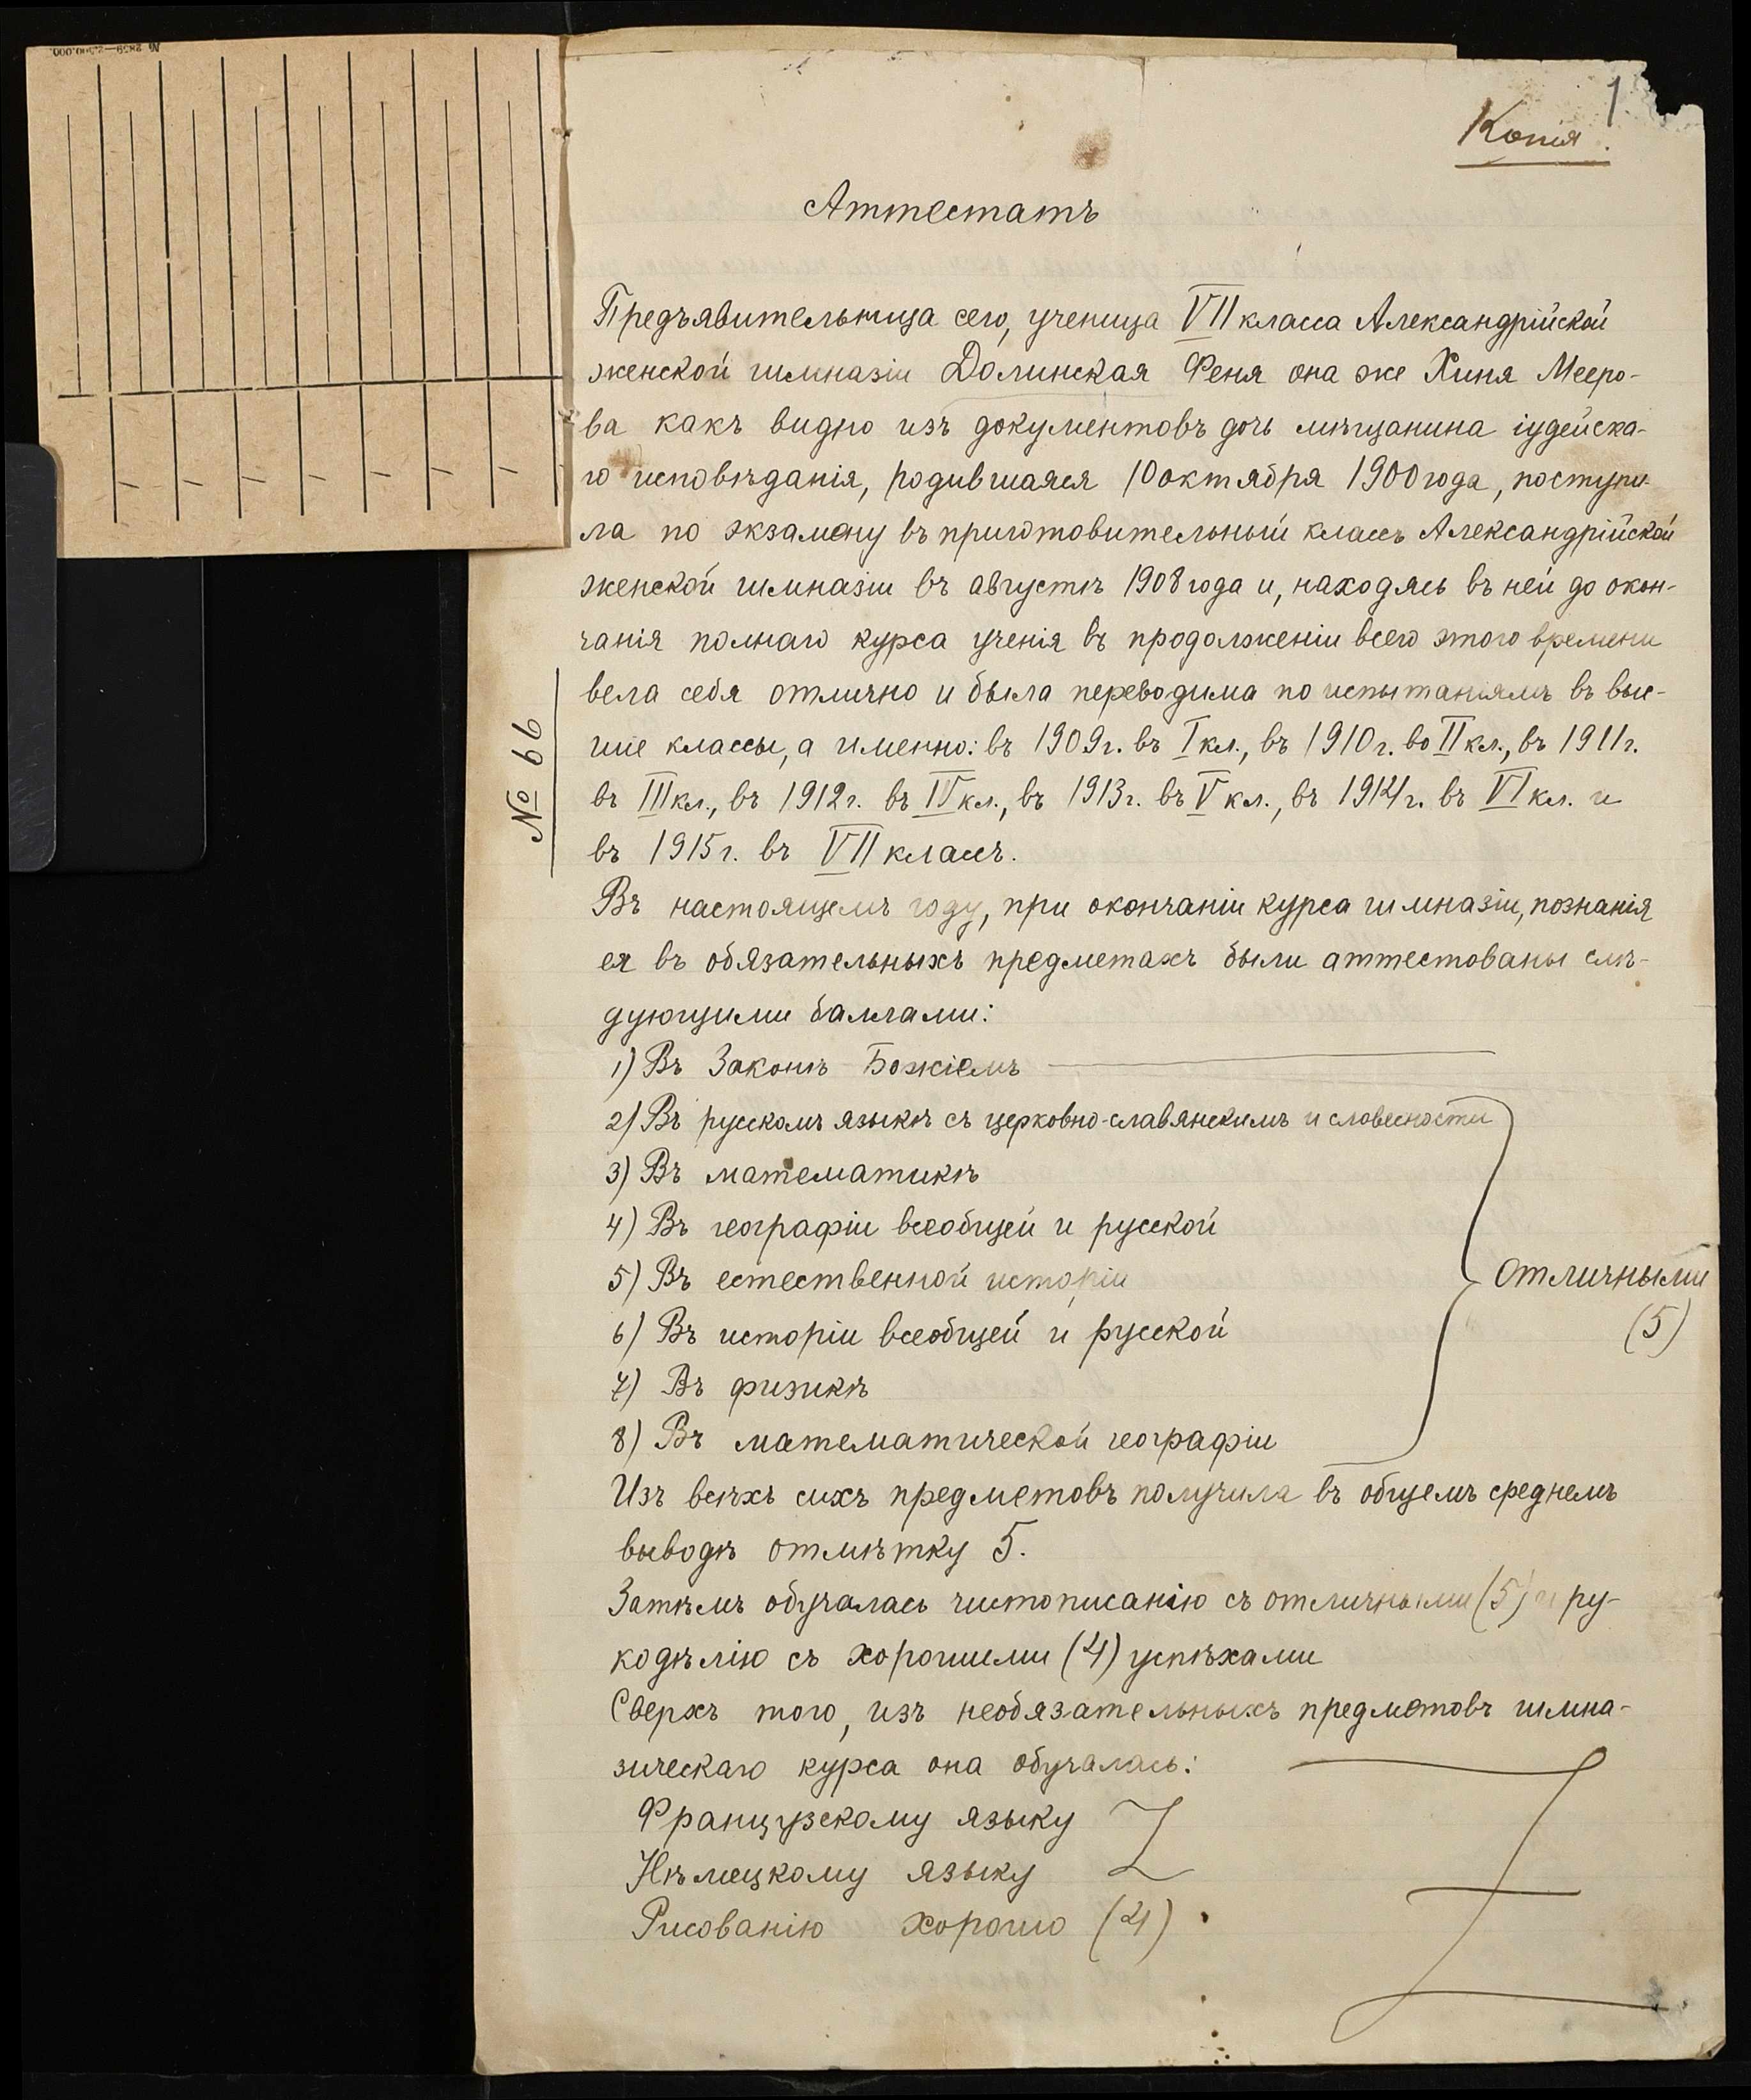 № 2859—2.500.000.
1
Копія.
Аттестатъ
Предъявительница сего, ученица VII класса Александрійской
женской гимназіи Долинская Феня она же Хиня Мееро-
ва какъ видно изъ документовъ дочь мѣщанина іудейска-
го исповѣданія, родившаяся 10 октября 1900 года, поступи-
ла по экзамену въ приготовительный классъ Александрійской
женской гимназіи въ августѣ 1908 года и, находясь въ ней до окон-
чанія полнаго курса ученія въ продолженіи всего этого времени
вела себя отлично и была переводима по испытаніямъ въ выс-
шіе классы, а именно: въ 1909 г. въ I кл., въ 1910 г. во II кл., въ 1911 г.
въ III кл., въ 1912 г. въ IV кл., въ 1913 г. въ V кл., въ 1914 г. въ VI кл. и
въ 1915 г. въ VII классъ.
№ 66
Въ настоящемъ году, при окончаніи курса гимназіи, познанія
ея въ обязательныхъ предметахъ были аттестованы слѣ-
дующими баллами:
1) Въ Законѣ Божіемъ
2) Въ русскомъ языкѣ съ церковно-славянскимъ и словесности
3) Въ математикѣ
4) Въ географіи всеобщей и русской
5) Въ естественной исторіи
6) Въ исторіи всеобщей и русской
7) Въ физикѣ
8) Въ математической географіи
отличными
(5)
Изъ всѣхъ сихъ предметовъ получила въ общемъ среднемъ
выводѣ отмѣтку 5.
Затѣмъ обучалась чистописанію съ отличными (5) и ру-
кодѣлію съ хорошими (4) успѣхами
Сверхъ того, изъ необязательныхъ предметовъ гимна-
зическаго курса она обучалась:
Французскому языку
Нѣмецкому языку
Рисованію хорошо (4)